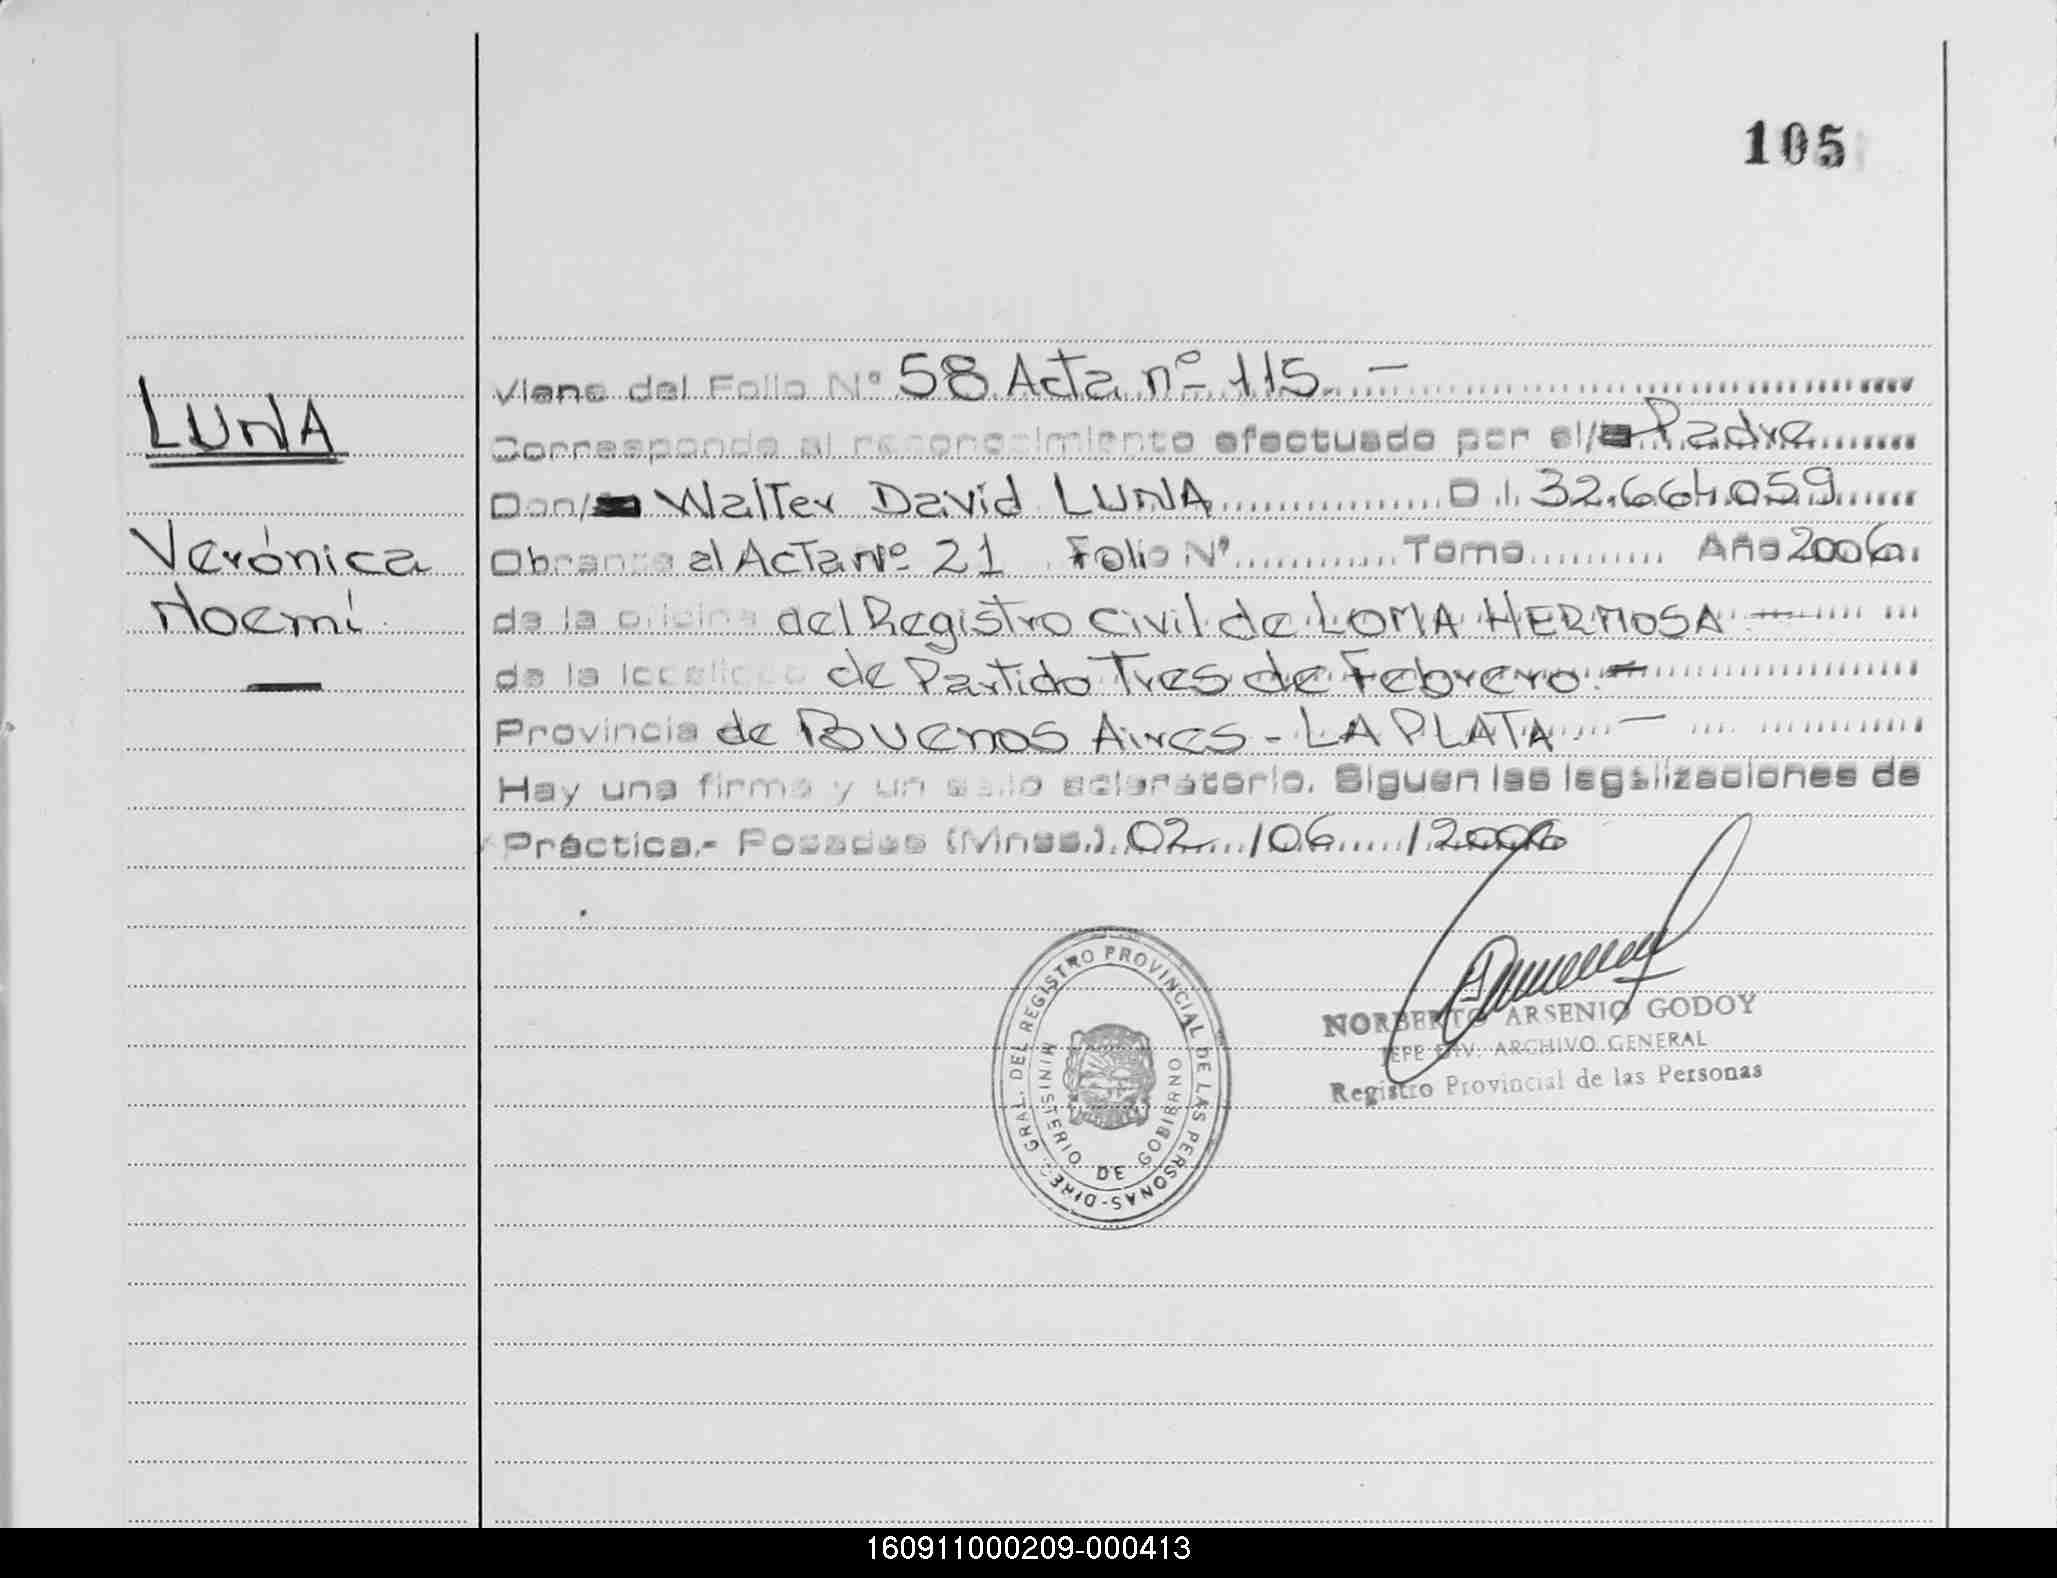 105
Viene del Folio Nº 58 Acta nº 115. —
LUNA
Corresponde al reconocimiento efectuado por el/ Padre
Don/ Walter David LUNA D.I. 32.664.059
Verónica
Obrante al Acta Nº 21 Folio Nº Tomo Año 2006
Noemí
de la oficina del Registro Civil de LOMA HERMOSA —
de la localidad de Partido Tres de Febrero. —
Provincia de Buenos Aires - LA PLATA —
Hay una firma y un sello aclaratorio. Siguen las legalizaciones de
Práctica.- Posadas (Mnes.) 02 /06 /2006
DIREC. GRAL. DEL REGISTRO PROVINCIAL DE LAS PERSONAS-
MINISTERIO DE GOBIERNO
NORBERTO ARSENIO GODOY
JEFE DIV. ARCHIVO GENERAL
Registro Provincial de las Personas
160911000209-000413